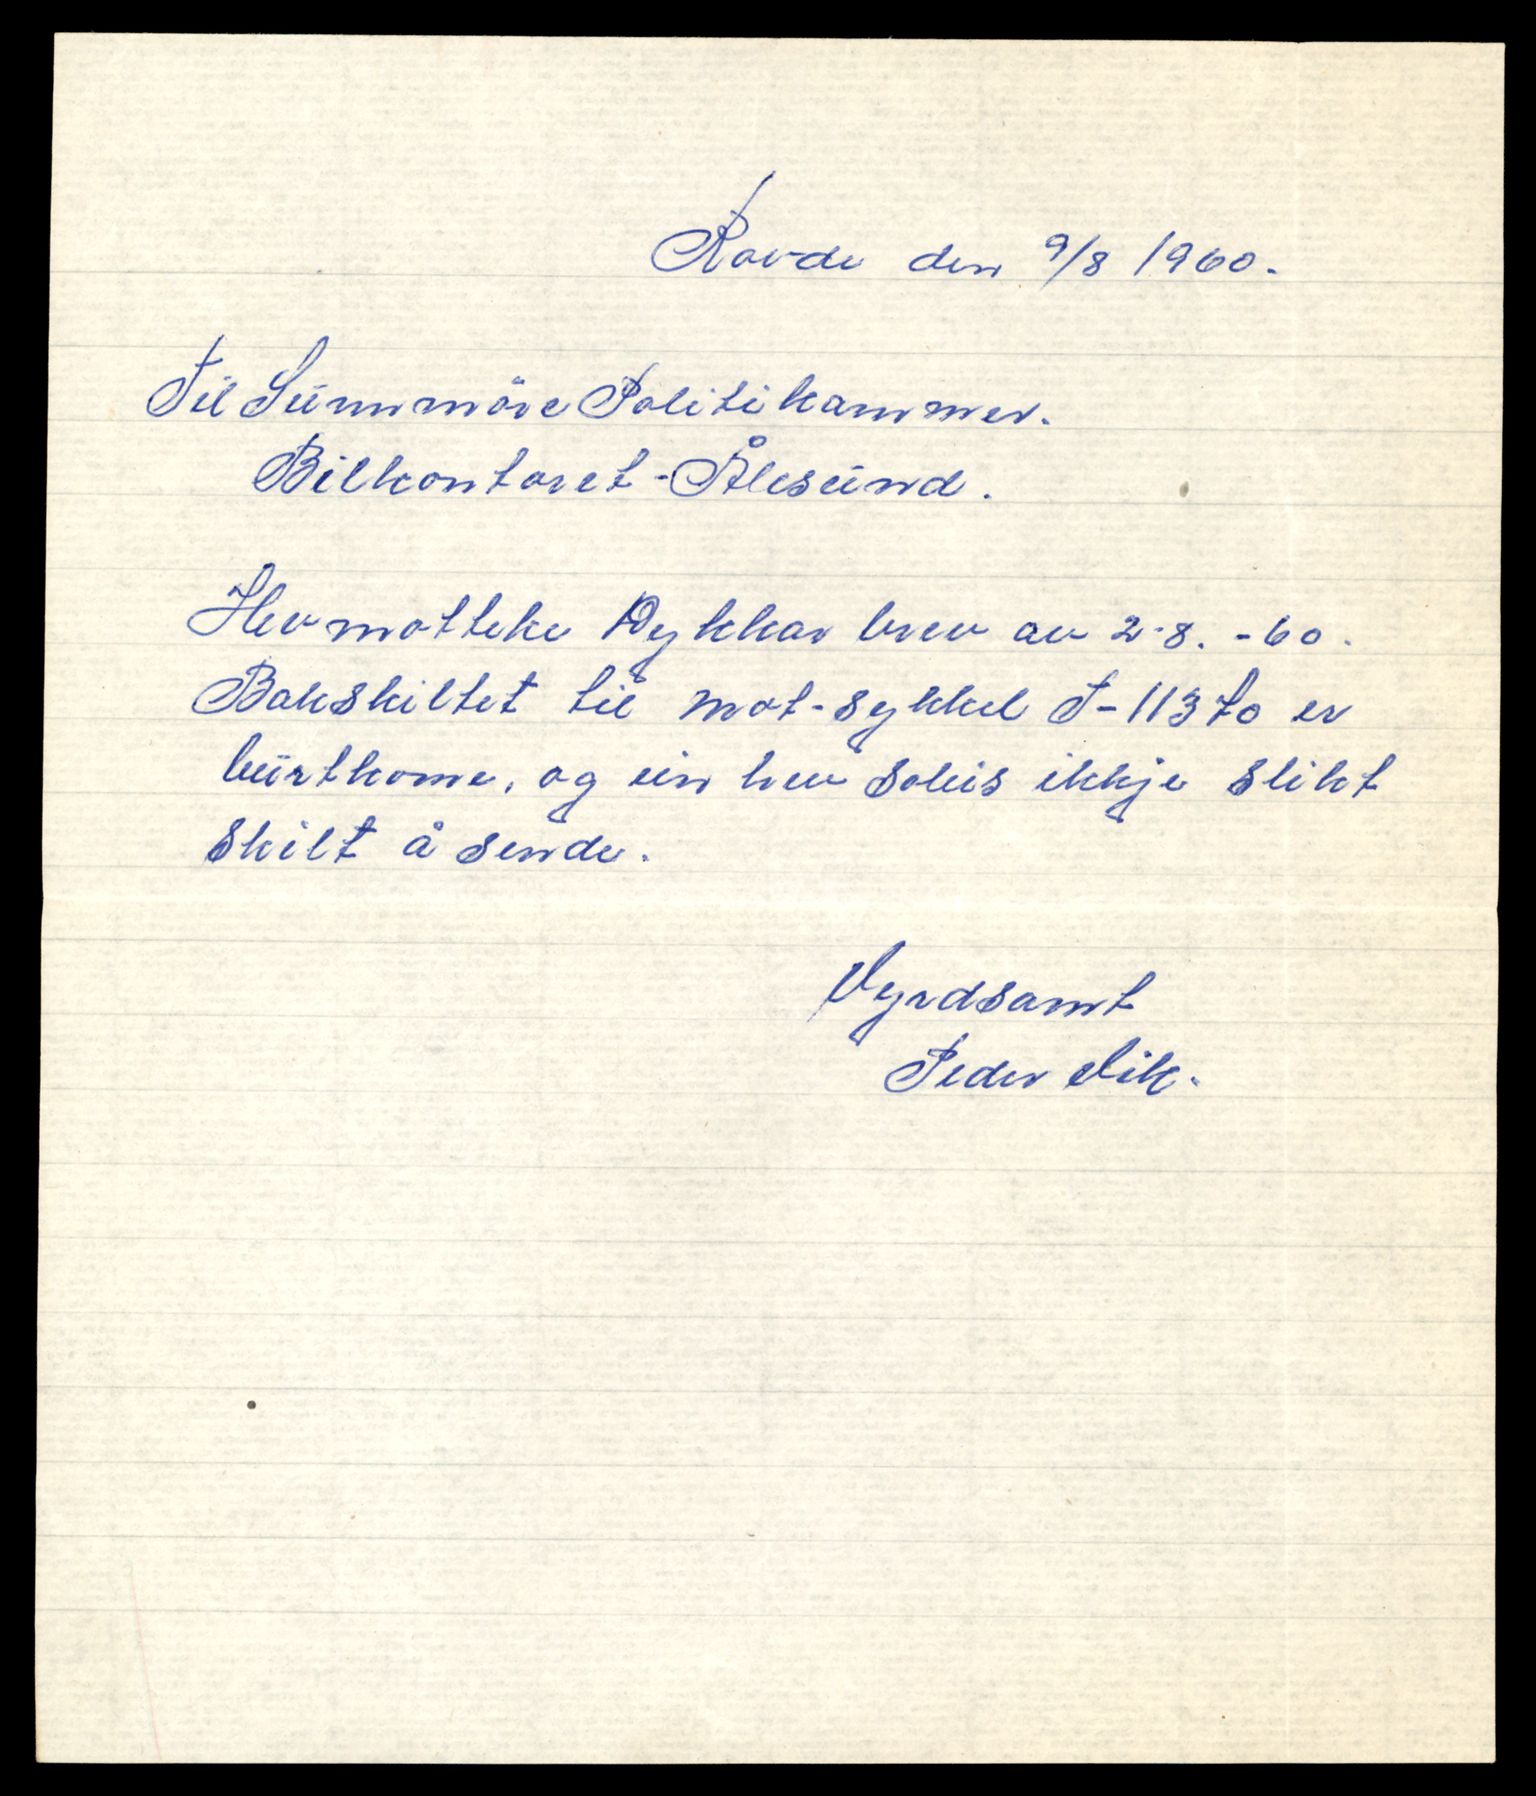 Rovde den 9/8 1960.
Til Sunnmöre Politikammer.
Bilkontoret - Ålesund.
Hev motteke Dykkar brev av 2.8. -60.
Bakskiltet til mot-sykkel T-11370 er
burtkome, og ein hev soleis ikkje slikt
skilt å sende.
Vyrdsamt
Peder Vik.